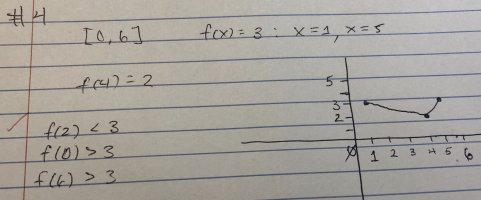 #4
[0,6] f(x) = 3 : x=1, x=5
f(4) = 2
f(2) < 3
f(0) > 3
f(6) > 3
5
3
2
0 1 2 3 4 5 6